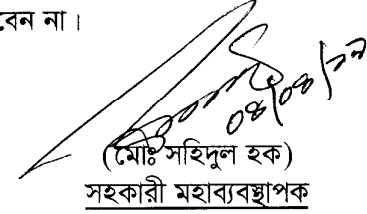 বেন না।
০৪/০৪/১৯
(মোঃ সহিদুল হক)
সহকারী মহাব্যবস্থাপক